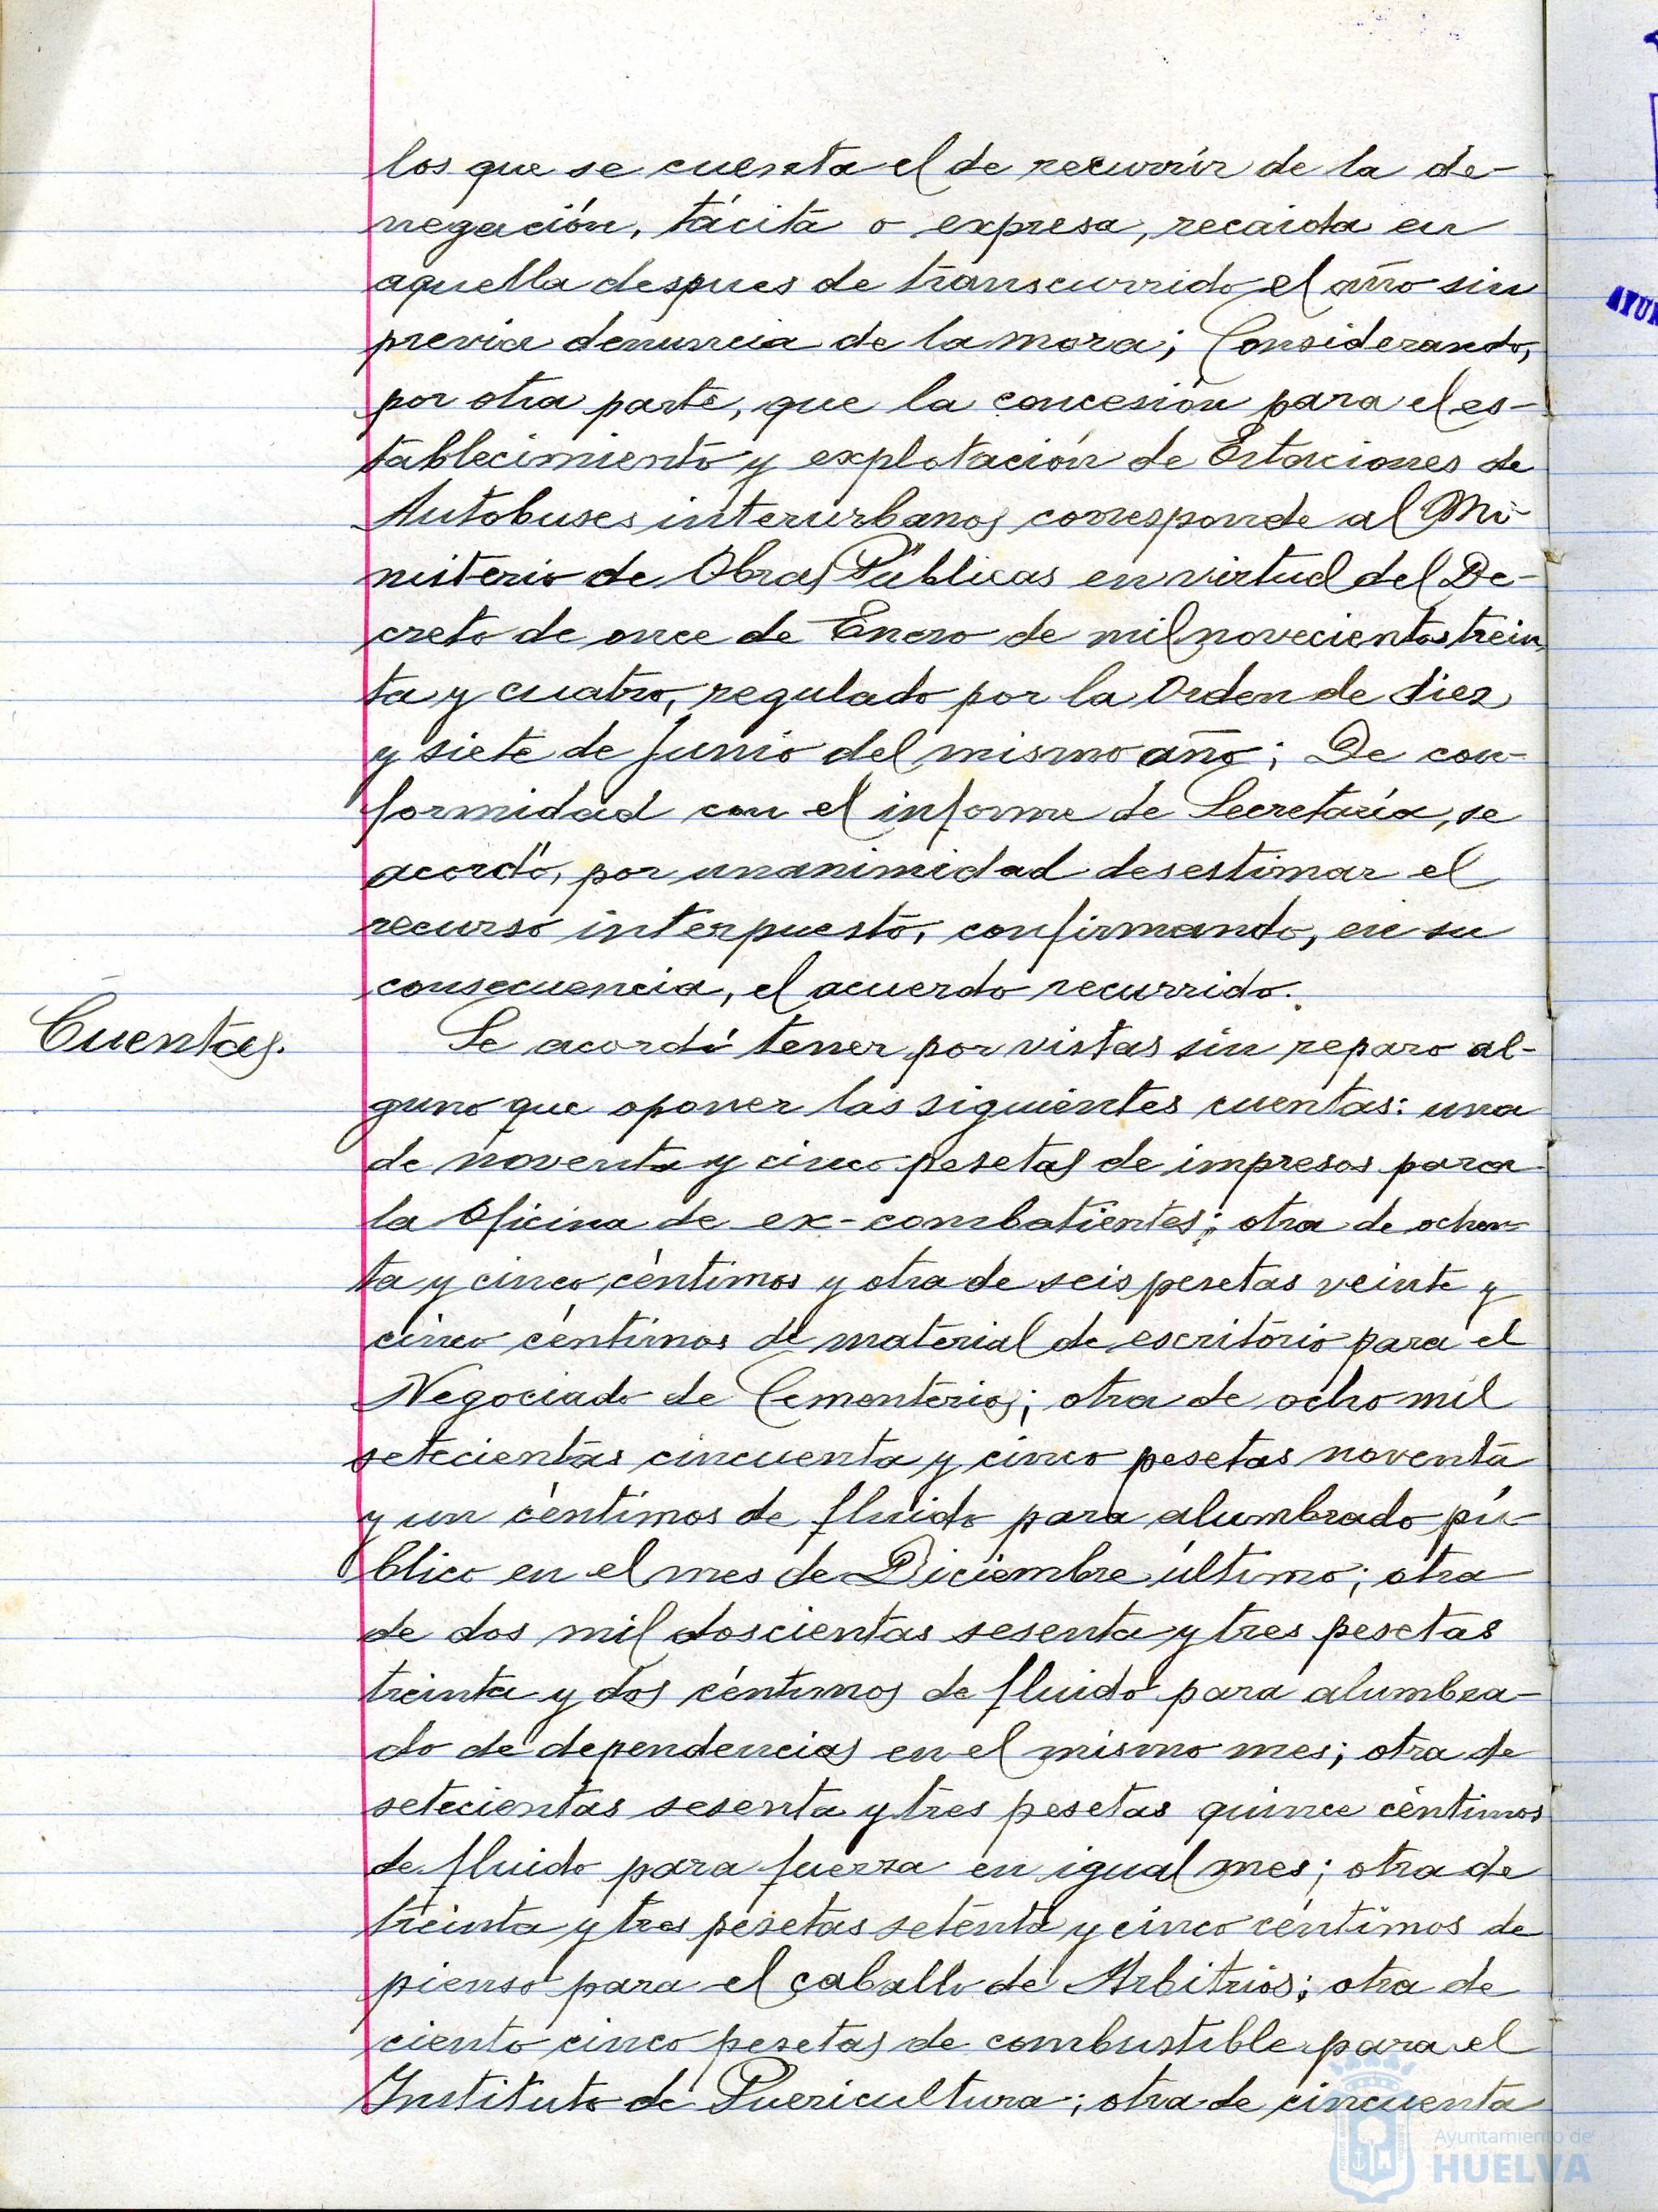 los que se cuenta el de recurrir de la de-
negación, tácita o expresa, recaida en
aquella despues de transcurrido el año sin
previa denuncia de la mora; Considerando,
por otra parte, que la concesión para el es-
tablecimiento y explotación de Estaciones de
Autobuses interurbanos corresponde al Mi-
nisterio de Obras Públicas en virtud del De-
creto de once de Enero de mil novecientos trein
ta y cuatro, regulado por la Orden de diez
y siete de Junio del mismo año; De con-
formidad con el informe de Secretaría, se
acordó, por unanimidad desestimar el
recurso interpuesto, confirmando, en su
consecuencia, el acuerdo recurrido.
Cuentas.
Se acordó tener por vistas sin reparo al-
guno que oponer las siguientes cuentas: una
de noventa y cinco pesetas de impresos para
la Oficina de ex-combatientes; otra de ochen-
ta y cinco céntimos y otra de seis pesetas veinte y
cinco céntimos de material de escritorio para el
Negociado de Cementerios; otra de ocho mil
setecientas cincuenta y cinco pesetas noventa
y un céntimos de fluido para alumbrado pú-
blico en el mes de Diciembre último; otra
de dos mil doscientas sesenta y tres pesetas
treinta y dos céntimos de fluido para alumbra-
do de dependencias en el mismo mes; otra de
setecientas sesenta y tres pesetas quince céntimos
de fluido para fuerza en igual mes; otra de
treinta y tres pesetas setenta y cinco céntimos de
pienso para el caballo de Arbitrios; otra de
ciento cinco pesetas de combustible para el
Instituto de Puericultura; otra de cincuenta
AYUN
Ayuntamiento de
HUELVA